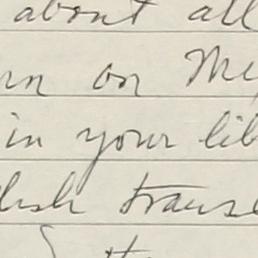 about all
on Me
in your lib
lish transl